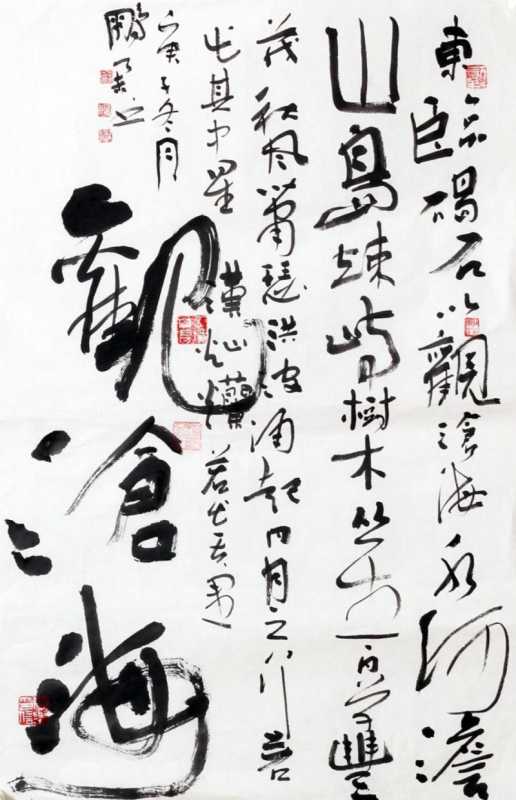 東臨碣石以觀滄海水何澹
山島竦峙樹木丛生百草豐
茂秋風蕭瑟洪波涌起日月之行若
出其中星漢灿爛若出其里
壬寅年冬月
鵬
觀滄海